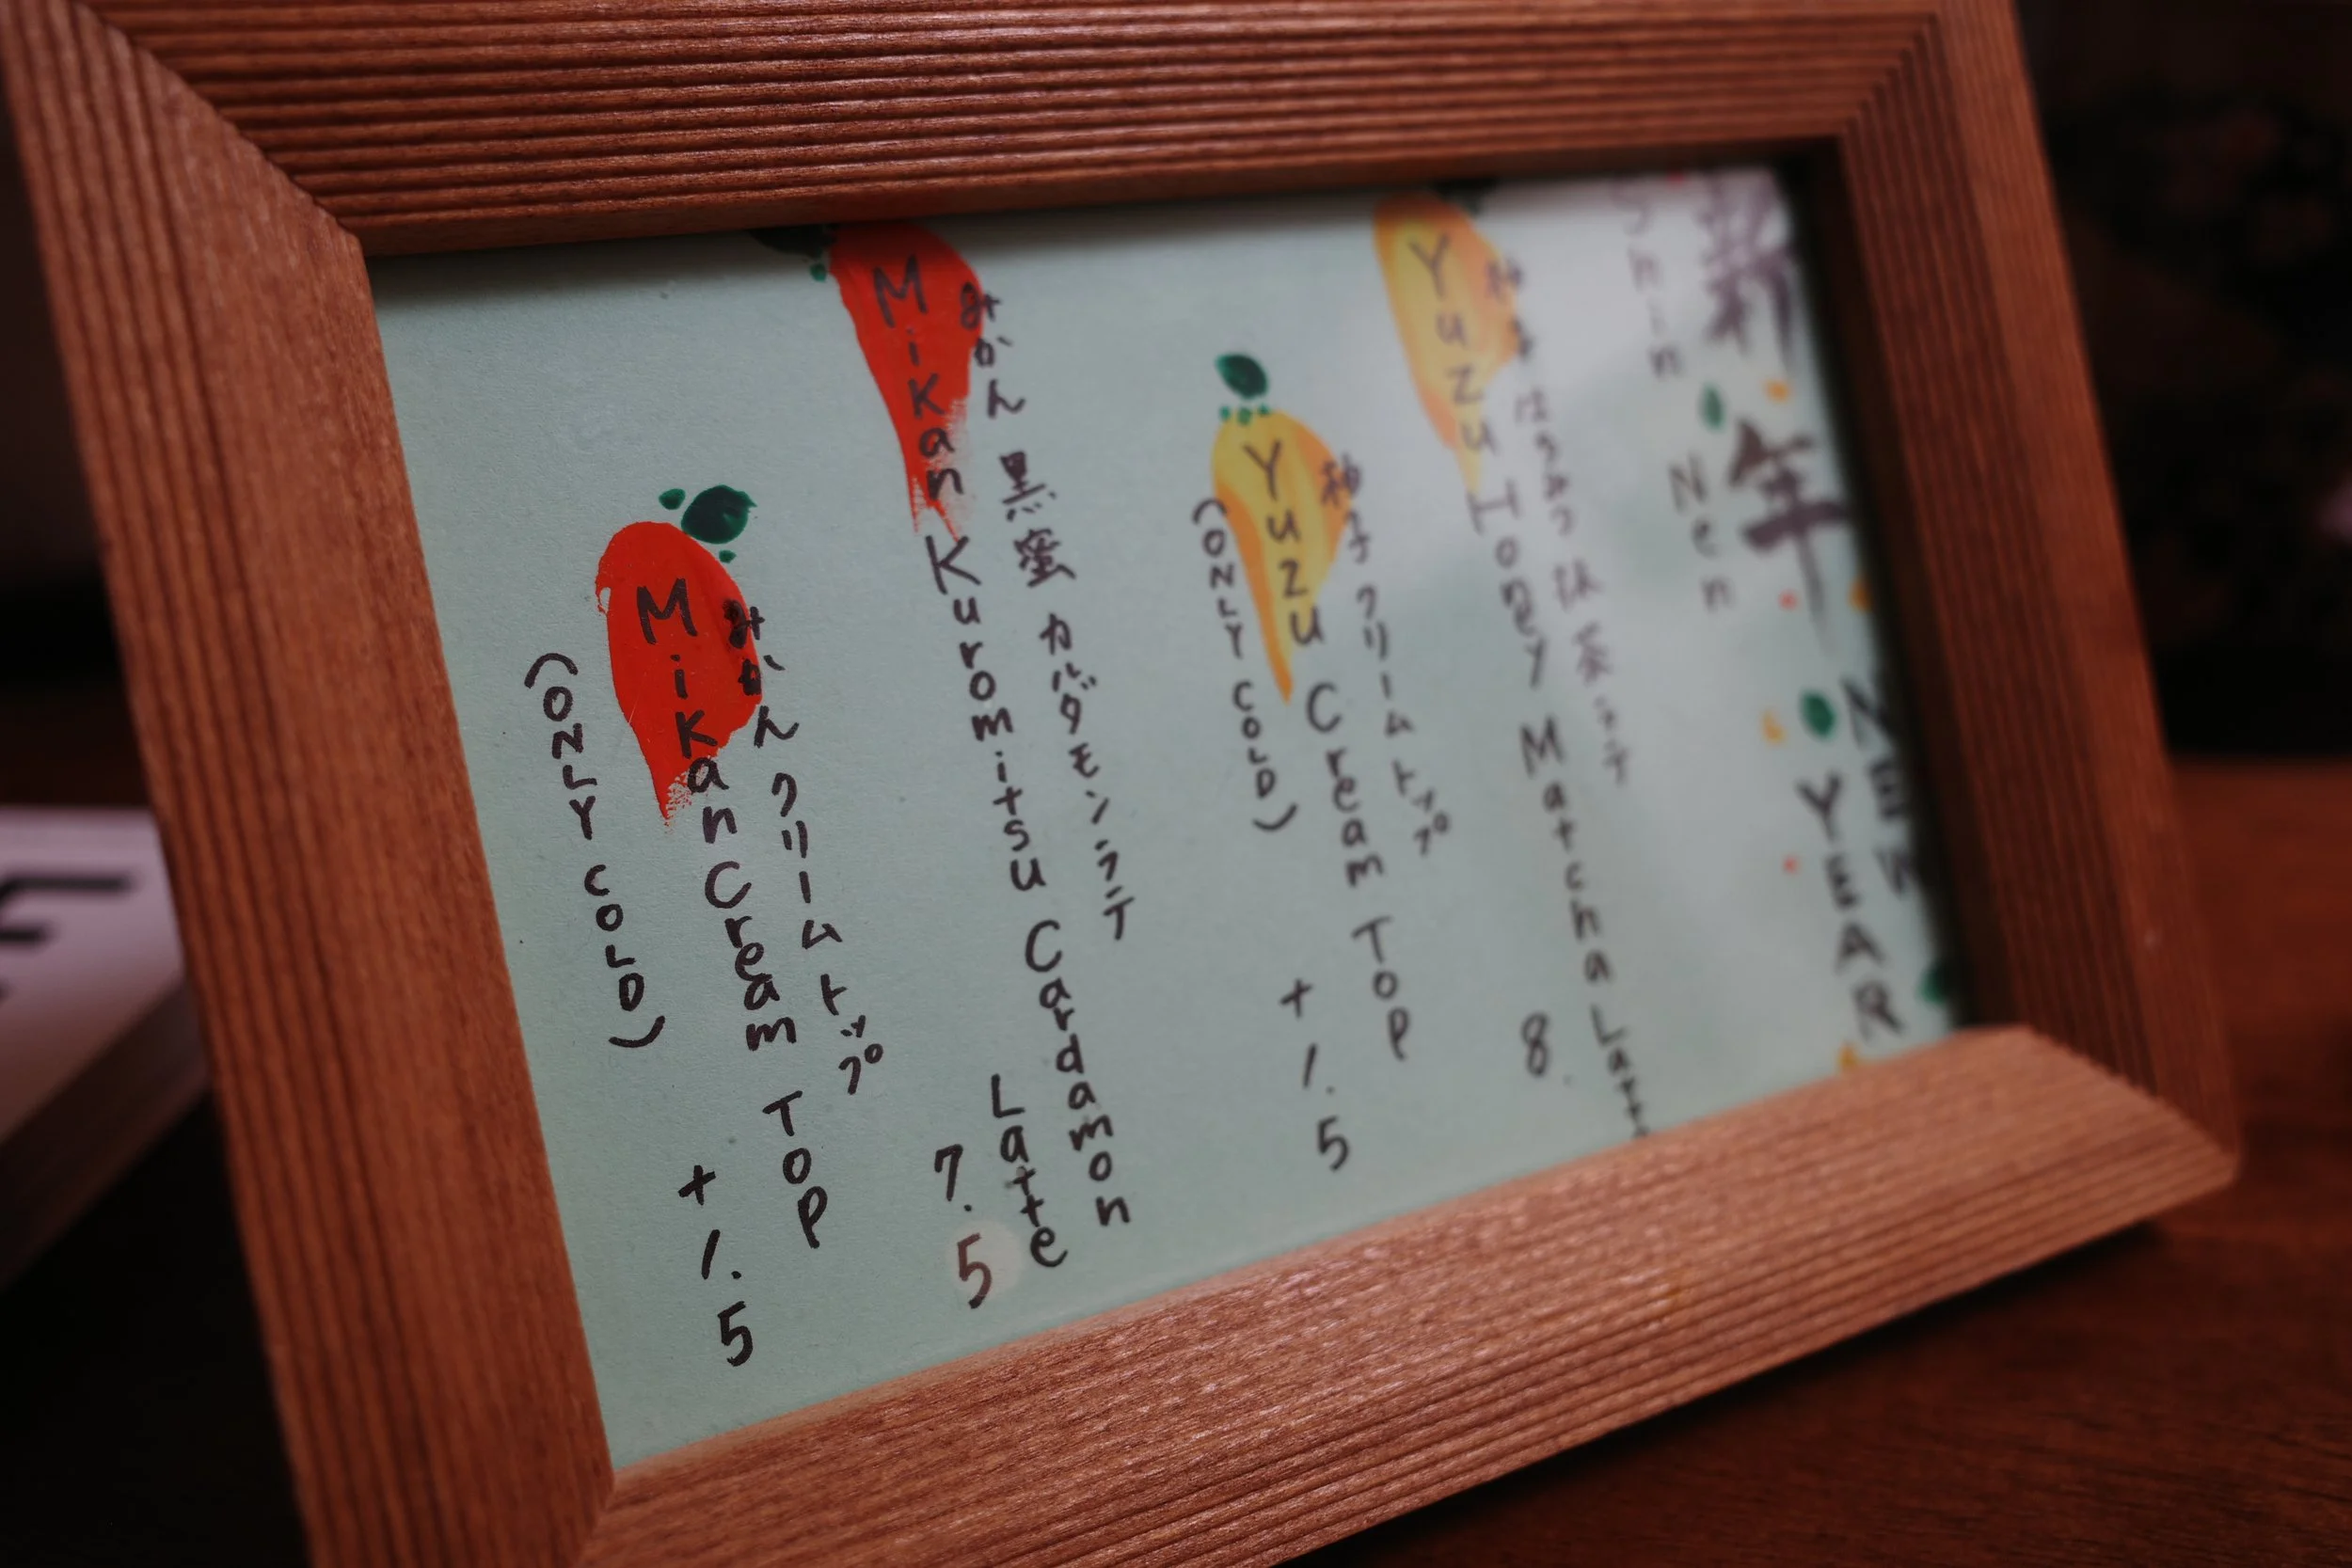 新年
Shin Nen
NEW
YEAR
柚子はちみつ抹茶ラテ
Yuzu Honey Matcha Latte
8.
柚子クリームトップ
Yuzu Cream TOP
(ONLY COLD)
+1.5
みかん 黒蜜 カルダモンラテ
Mikan Kuromitsu Cardamon
Latte
7.5
みかんクリームトップ
Mikan Cream TOP
(ONLY COLD)
+1.5